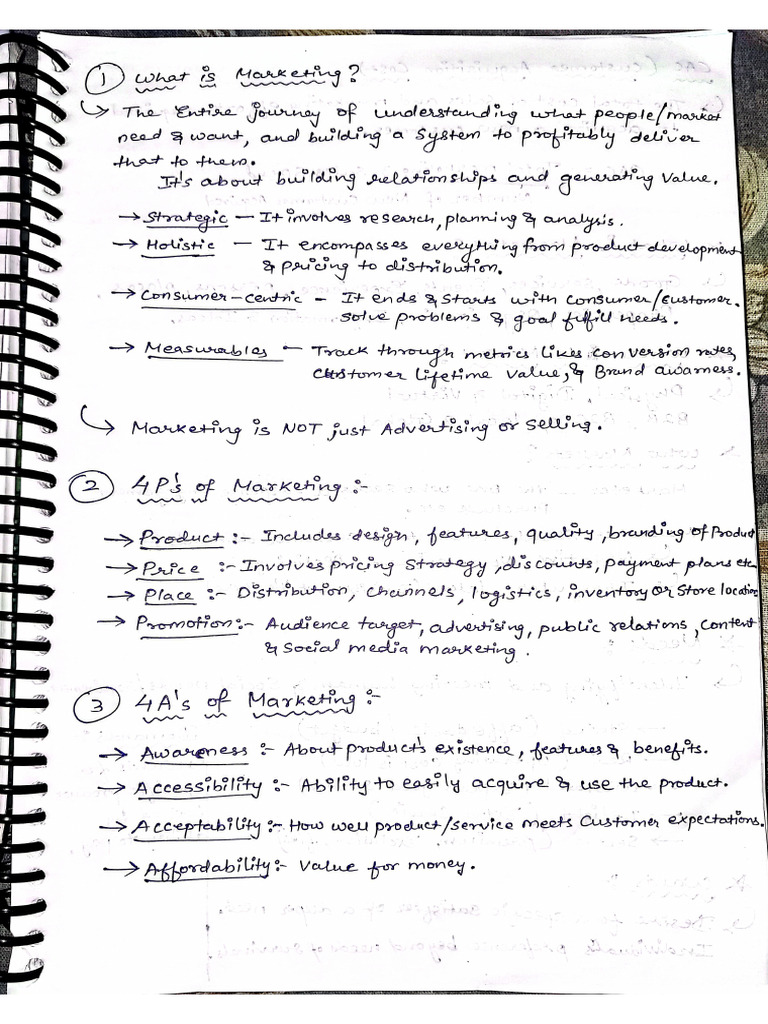 ① What is Marketing?
↳ The Entire journey of understanding what people/market
need & want, and building a system to profitably deliver
that to them.
It's about building relationships and generating value.
→ Strategic – It involves research, planning & analysis.
→ Holistic – It encompasses everything from product development
& pricing to distribution.
→ Consumer-centric – It ends & starts with consumer/customer.
solve problems & goal fulfill needs.
→ Measurables – Track through metrics likes conversion rates,
customer lifetime value, & Brand awarness.
↳ Marketing is NOT just Advertising or Selling.
② 4P's of Marketing :-
→ Product :- Includes design, features, quality, branding of Product
→ Price :- Involves pricing strategy, discounts, payment plans etc
→ Place :- Distribution, channels, logistics, inventory or store location
→ Promotion :- Audience target, advertising, public relations, content
& social media marketing.
③ 4A's of Marketing :-
→ Awareness :- About product's existence, features & benefits.
→ Accessibility :- Ability to easily acquire & use the product.
→ Acceptability :- How well product/service meets customer expectations.
→ Affordability :- Value for money.